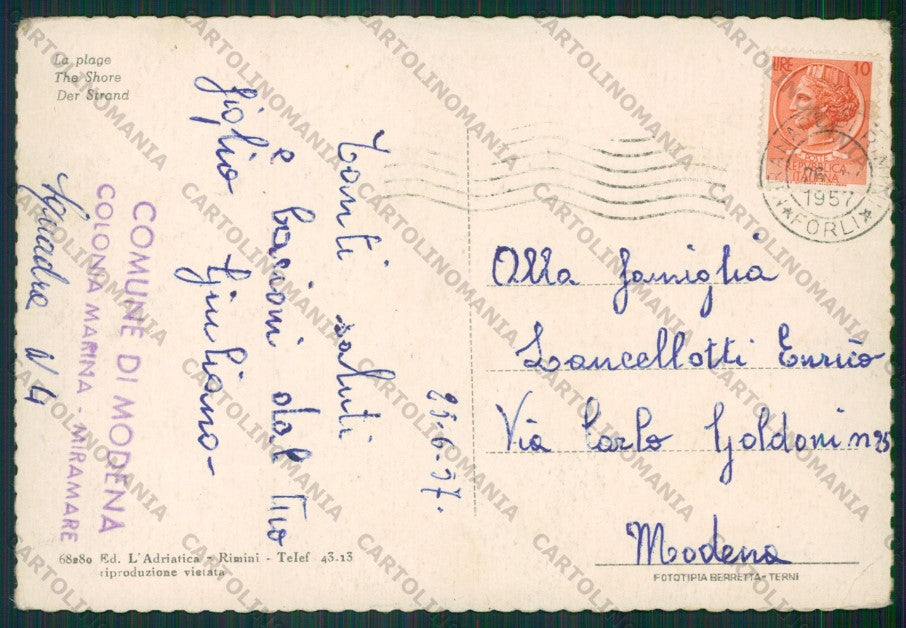 La plage
The Shore
Der Strand
Tanti saluti
e bacioni dal tuo
figlio Giuliano-
25-6-57.
Squadra N 4
COMUNE DI MODENA
COLONIA MARINA - MIRAMARE
LIRE 10
POSTE
REPUBBLICA
ITALIANA
1957
★ FORLI ★
Alla famiglia
Lancellotti Enrico
Via Carlo Goldoni n 25
Modena
68280 Ed. L'Adriatica - Rimini - Telef 43-13
riproduzione vietata
FOTOTIPIA BERRETTA - TERNI
CARTOLINOMANIA